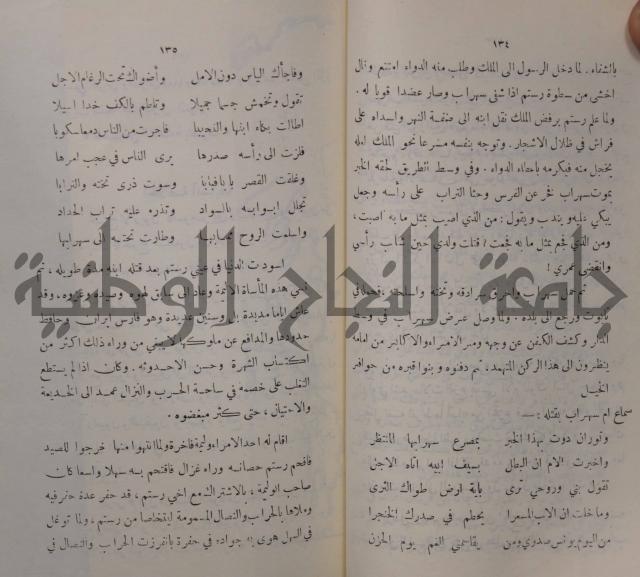 ١٣٤
بالشفاء . لما دخل الرسول الى الملك وطلب منه الدواء امتنع وقال
اخشى من سطوة رستم اذا شفي سهراب وصار عضدا قويا له .
ولما علم رستم برفض الملك نقل ابنه الى ضفة النهر واسداه على
فراش في ظلال الاشجار . وتوجه بنفسه مسرعا نحو الملك لعله
يخجل منه فيكرمه باعطاء الدواء . وفي وسط الطريق لحقه الخبر
بموت سهراب فخر عن الفرس وحثا التراب على رأسه وجعل
يبكي ويندب ويقول : من الذي اصيب بمثل ما به اصبت ،
ومن الذي فجع بمثل ما به فجعت ? قتلت ولدي حين شاب رأسي
وانقضى عمري !
ثم حمل سهراب واحرق سرادقه وتخته واسلحته
تابوت ورجع الى بلده . ولما وصل عرض سهراب في وسط
الدار وكشف الكفن عن وجهه ومر الامراء والاكابر من امامه
ينظرون الى هذا الركن المتهدم ، ثم دفنوه وبنوا قبره من حوافر
الخيل
سماع ام سهراب بقتله : —
وتوران دوت بهذا الخبر بمصرع سهرابها المنتظر
واخبرت الام ان البطل بسيف ابيه اتاه الاجل
تقول بني وروحي ترى باية ارض طواك الثرى
وما خلت ان الاب المسعرا يحطم في صدرك الخنجرا
من اليوم يؤنس صدري ومن يقاسمني الغم يوم الحزن
١٣٥
وفاجأك الياس دون الامل واضواك تحت الرغام الاجل
تقول وتخمش جسما جميلا وتلطم بالكف خدا اسيلا
اطالت بكاء ابنها والنحيبا فاجرت من الناس دمعا سكوبا
فلزت الى رأسه صدرها يرى الناس في عجب امرها
وغلقت القصر بابا فبابا وسوت ذرى تخته والترابا
تجلل ابوابه بالسواد وتذره عليه تراب الحداد
واسلمت الروح وطارت تحتـه الى سهرابها
اسودت الدنيا في عيني رستم بعد قتله ابنه مدة طويلة ، ثم
نسي هذه المأساة الاليمة وعاد الى سابق لهوه وصيده وغزوه ، وقد
عاش اياما مديدة بل وسنين عديدة وهو فارس ايران وحافظ
حدودها والمدافع عن ملوكها لا يبغي من وراء ذلك اكثر من
اكتساب الشهرة وحسن الاحدوثة . وكان اذا لم يستطع
التغلب على خصمه في ساحة الحرب والنزال عمد الى الخديعة
والاحتيال ، حتى كثر مبغضوه .
اقام له احد الامراء وليمة فاخرة ولما انتهوا منها خرجوا للصيد
فاقحم رستم حصانه وراء غزال فاقتحم به سهلا واسعا كان
صاحب الوليمة ، بالاشتراك مع اخي رستم ، قد حفر عدة حفر فيه
وملأها بالحراب والنصال المسمومة انتقاصا من رستم ، ولما توغل
في السهل هوى به جواده في حفرة فانغرزت الحراب والنصال في
جامعة النجاح الوطنية